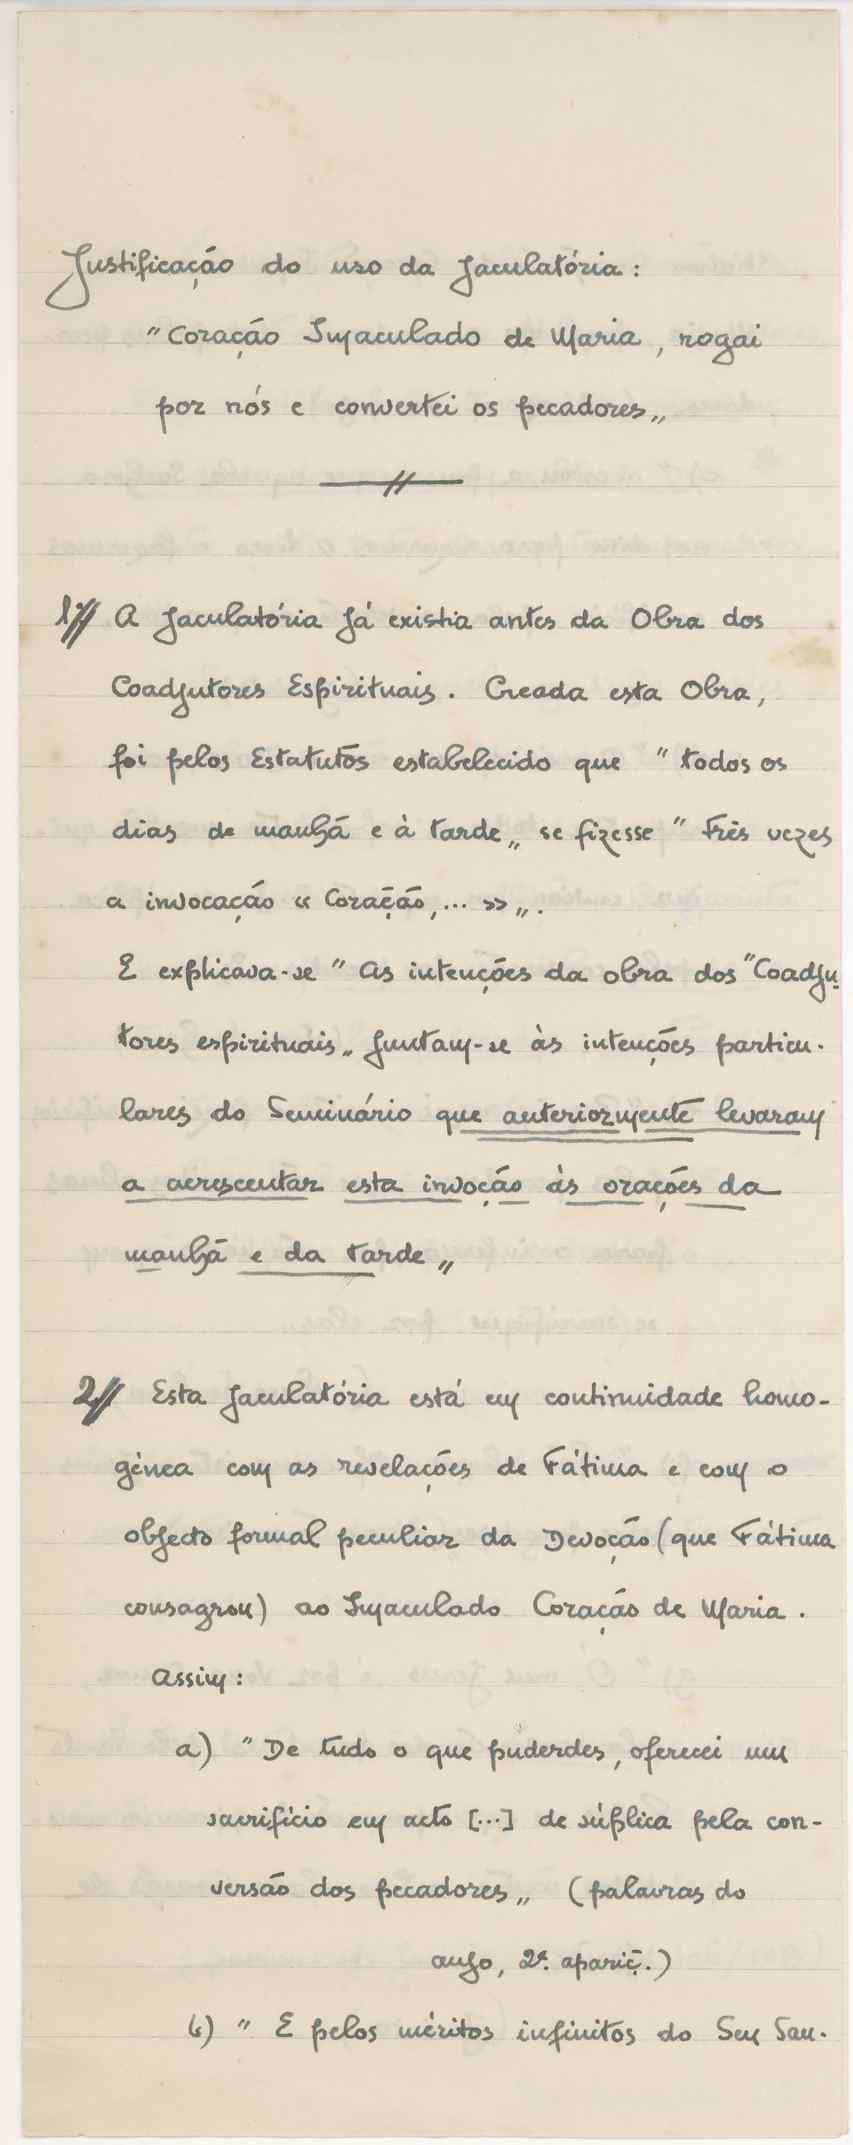 Justificação do uso da Jaculatória:
"Coração Imaculado de Maria, rogai
por nós e convertei os pecadores„
1º// A Jaculatória já existia antes da Obra dos
Coadjutores Espirituais. Creada esta Obra,
foi pelos Estatutos estabelecido que "todos os
dias de manhã e à tarde„ se fizesse "três vezes
a invocação «Coração,... »„.
E explicava-se "As intenções da obra dos "Coadju-
tores espirituais„ juntam-se às intenções particu-
lares do Seminário que anteriormente levaram
a acrescentar esta invocão às orações da
manhã e da tarde„
2// Esta Jaculatória está em continuidade homo-
génea com as revelações de Fátima e com o
objecto formal peculiar da Devoção (que Fátima
consagrou) ao Imaculado Coração de Maria.
Assim:
a) "De tudo o que puderdes, oferecei um
sacrifício em acto [...] de súplica pela con-
versão dos pecadores„ (palavras do
anjo, 2ª. apariç.)
b) "E pelos méritos infinitos do Seu San-